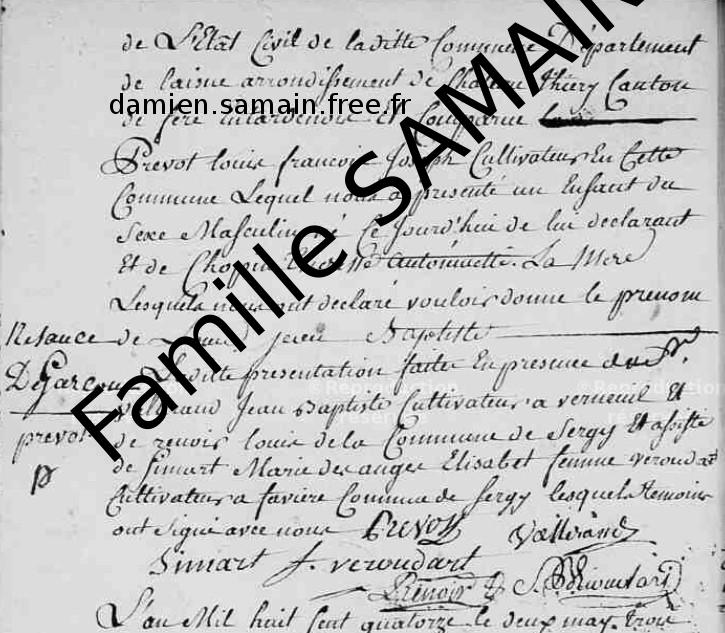 de L'Etat Civil de laditte Commune Département
de laisne arrondissement de Chateau thiery Canton
damien.samain.free.fr
de fere Entardenois Et Comparue
Famille SAMAIN
Prevot louis françois Joseph Cultivateur En Cette
Commune Lequel nous a presenté un Enfant du
Sexe Masculin né Ce Jourd'hui de lui declarant
Et de Chopin antoinnette. La Mere
Lesquels nous ont declaré vouloir donne le prenom
Nesance de Louis Baptiste
De Garcon Laditte presentation faite En presence de
Jean Baptiste Cultivateur a verneuil Et
© Reproduction réservée
© Reproduction réservée
prevot de renois louis dela Commune de Sergy Et assiste
p de simart Marie des anges Elisabet femme veroudart
Cultivateur a faviere Commune de Sergy lesquels temoins
ont signé avec nous Prevot Vallerand
Simart J. veroudart
Renois
L'an Mil huit Cent quatorze le deux may trois